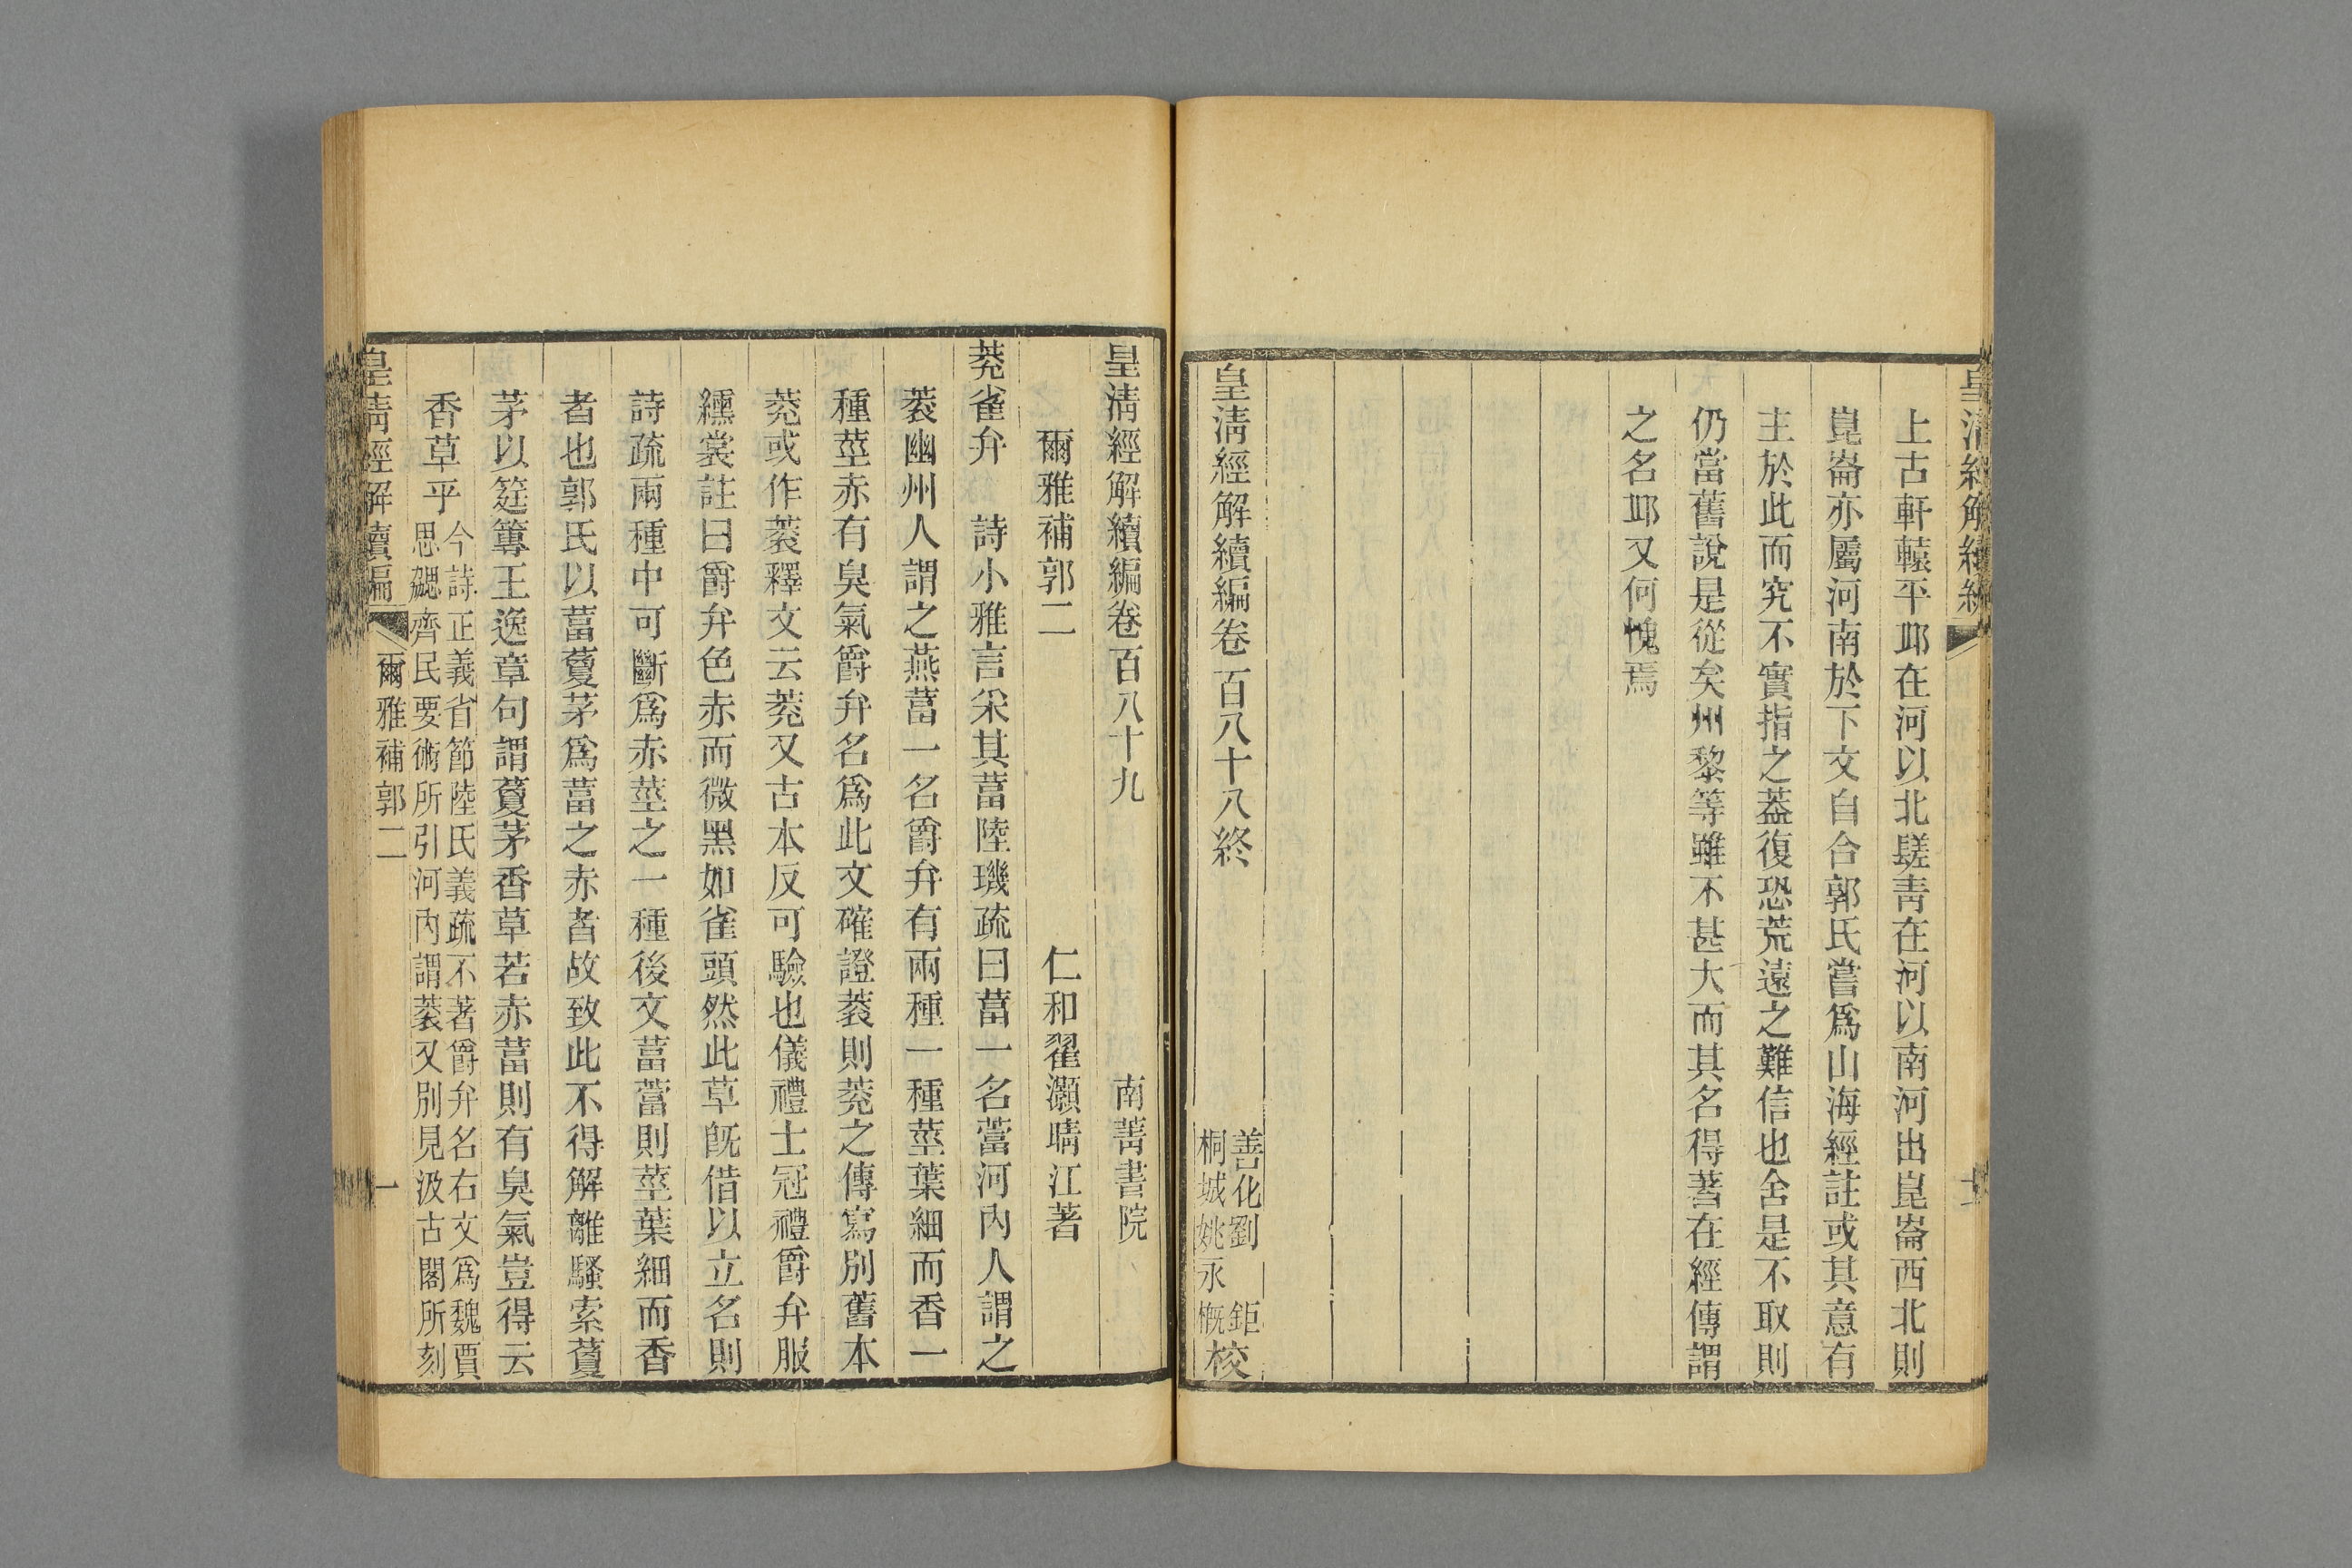 皇清經解續編
上古軒轅平邱在河以北䰐靑在河以南河出崑崙西北則
崑崙亦屬河南於下文自合郭氏嘗爲山海經註或其意有
主於此而究不實指之葢復恐荒遠之難信也舍是不取則
仍當舊說是從矣州黎等雖不甚大而其名得著在經傳謂
之名邱又何愧焉
皇淸經解續編卷二百八十八終
善化劉 鉅
桐城姚永槪校
皇淸經解續編卷二百八十九
南菁書院
爾雅補郭二
仁和翟灝晴江著
茺雀弁 詩小雅言采其葍陸璣疏曰葍一名䔰河內人謂之
䒾幽州人謂之燕葍一名爵弁有兩種一種莖葉細而香一
種莖赤有臭氣爵弁名爲此文確證䒾則茺之傳寫別舊本
茺或作䒾釋文云茺又古本反可驗也儀禮士冠禮爵弁服
纁裳註曰爵弁色赤而微黑如雀頭然此草旣借以立名則
詩疏兩種中可斷爲赤莖之一種後文葍䔰則莖葉細而香
者也郭氏以葍藑茅爲葍之赤者故致此不得解離騷索藑
茅以筳篿王逸章句謂藑茅香草若赤葍則有臭氣豈得云
香草乎
今詩正義省節陸氏義疏不著爵弁名右文爲魏賈
思勰齊民要術所引河內謂䒾又別見汲古閣所刻
皇淸經解續編 爾雅補郭二 一